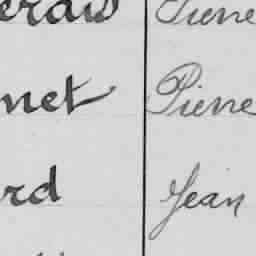 erdis Pierre
net Pierre
rd Jean